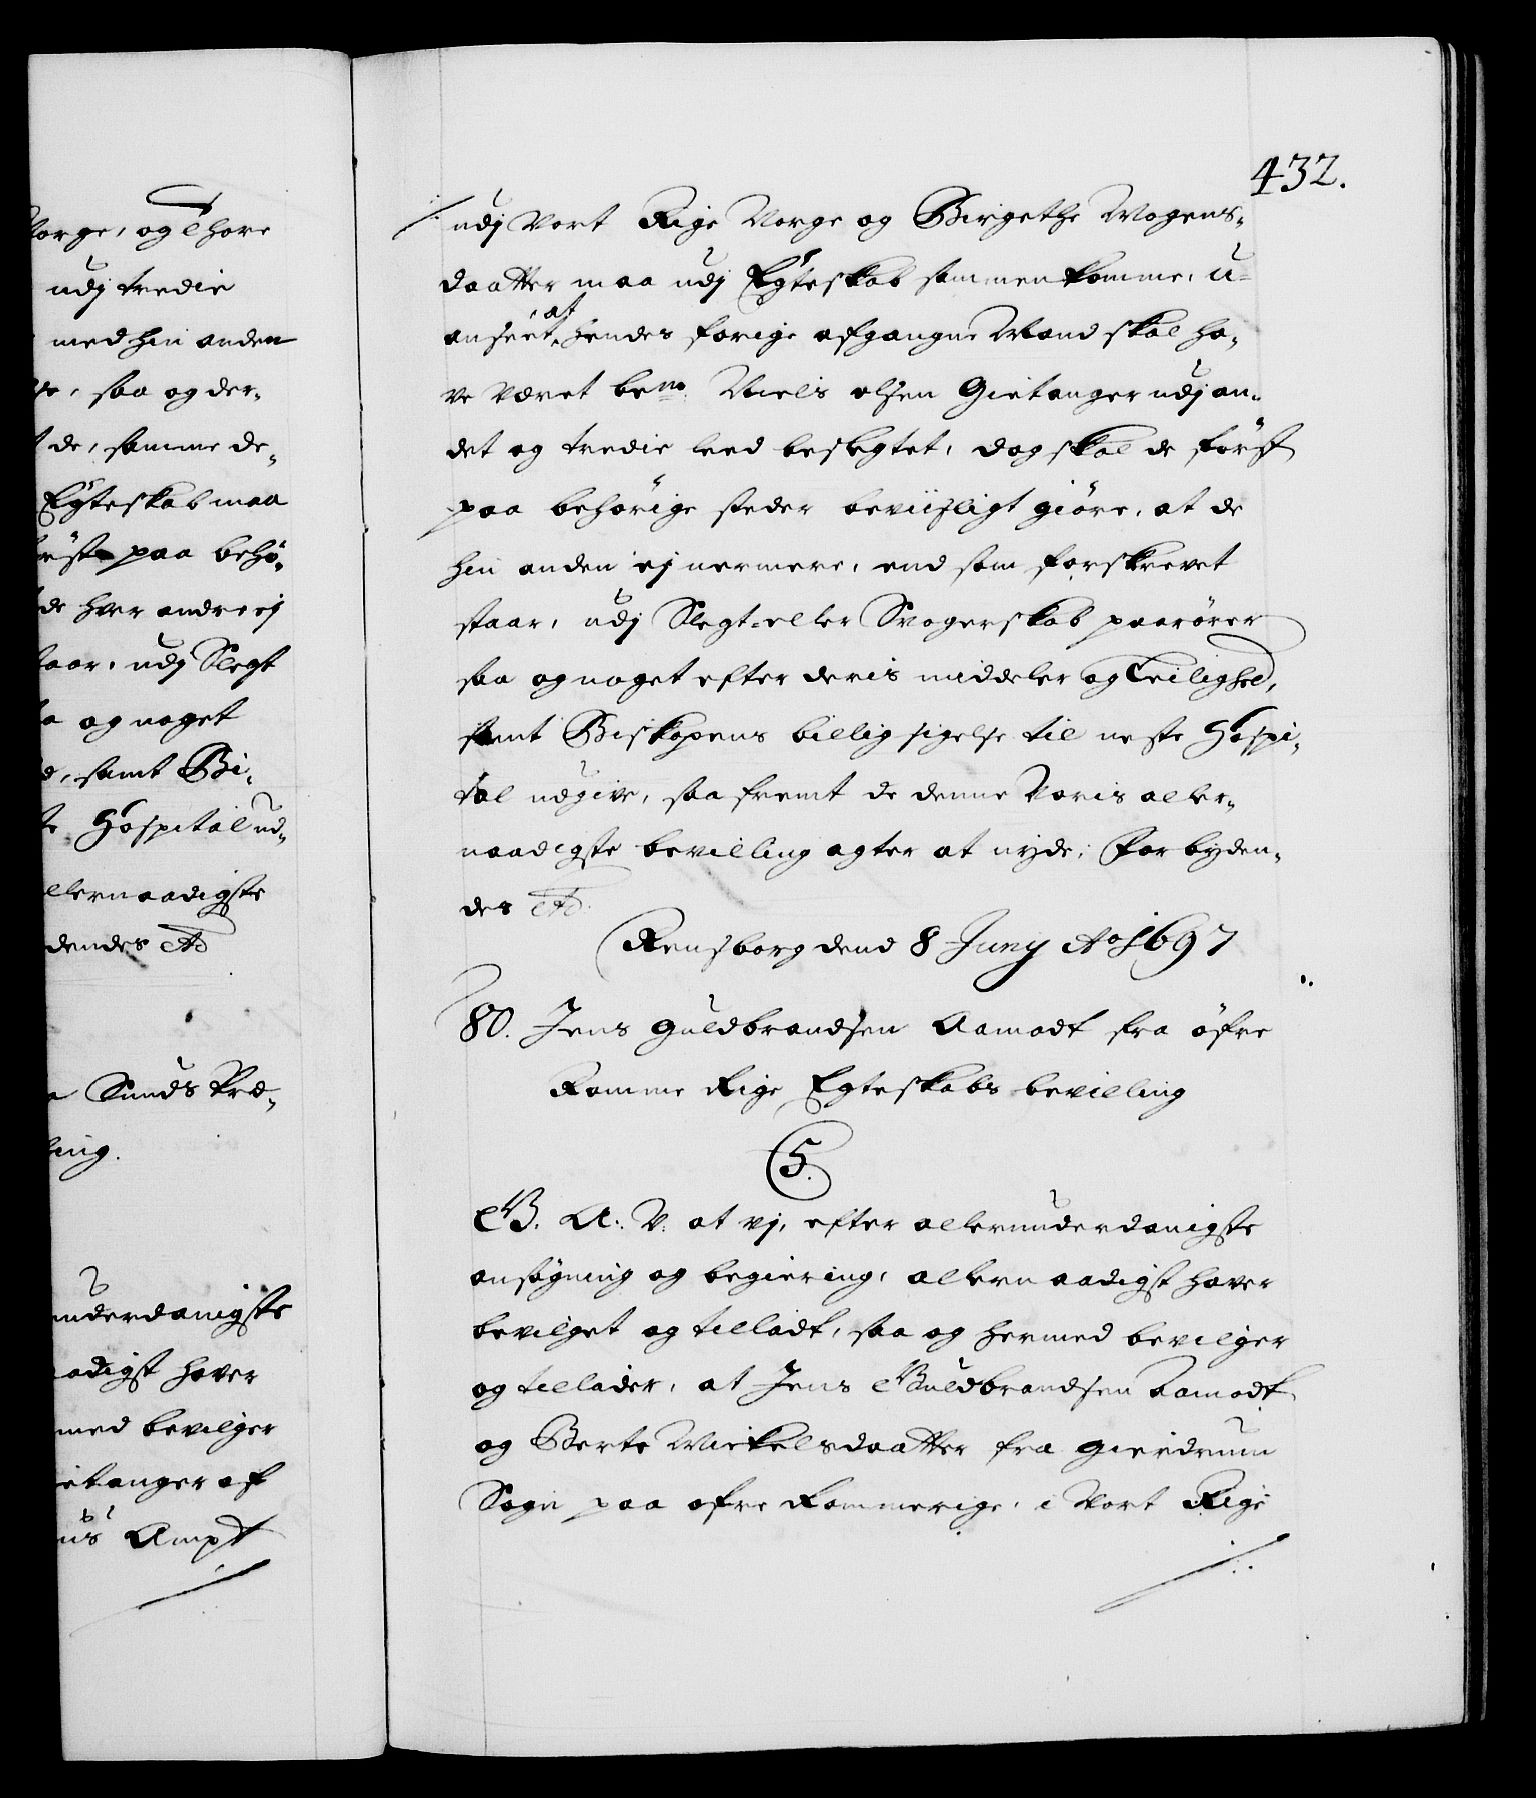 Norge, og Thore
udj tredie
med hin anden
saa og der¬
de, samme de¬
Egteskab maa
først paa behø¬
de hver andre ej
staar, udj Slegt
og noget
samt Bi¬
Hospital ud¬
allernaadigste
dendes etc
Sunds Præ¬
ling.
underdanigste
naadigst hafver
med bevilger
Gietanger af
huus Ampt
432.
udj Vort Rige Norge og Birgethe Mogens¬
daatter maa udj Egteskab sammenkomme, u¬
anseet, at hendes forige afgangne Mand skal ha¬
ve været bem.te Niels olsen Gietanger udj an¬
det og tredie leed beslegtet, dog skal de først
paa behørige steder beviisligt giøre, at de
hin anden ej nermere, end som forskrevet
staar, udj Slegt- eller Svogerskab paarører
saa og noget efter deris middeler og Leilighed,
samt Biskopens billig sigelse til neste Hospi¬
tal udgive, saafremt de denne Voris aller¬
naadigste bevilling agter at nyde; Forbyden¬
des etc.
Rensborg dend 8 Junij Ao 1697
80. Jens Guldbrandsen Aamodt fra øfre
Romme Rige Egteskabs bevilling
C 5.
G. A. V. at vj, efter allerunderdanigste
ansøgning og begiering, allernaadigst haver
bevilget og tilladt, saa og hermed bevilger
og tillader, at Jens Guldbrandsen Aamodt
og Berte Mickelsdaatter fra Gierdrum
Sogn paa øfre Rommerige, i Vort Rige